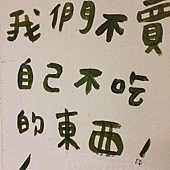 我們不賣
自己不吃
的東西！